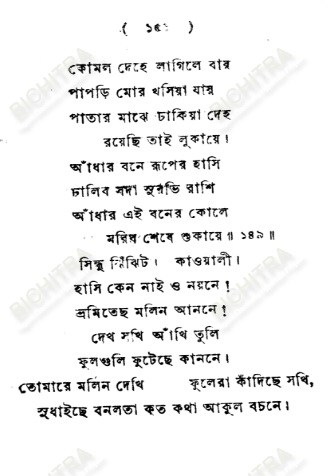 কোমল দেহে লাগিলে বায়
পাপড়ি মোর খসিয়া যায়
পাতার মাঝে ঢাকিয়া দেহ
রয়েছি তাই লুকায়ে।
আঁধার বনে রূপের হাসি
ঢালিব সদা সুরভি রাশি
আঁধার এই বনের কোলে
মরিব শেষে শুকায়ে॥ ১৪৯॥
সিন্ধু ঝিঁঝিট। কাওয়ালী।
হাসি কেন নাই ও নয়নে!
ভ্রমিতেছ মলিন আননে!
দেখ সখি আঁখি তুলি
ফুলগুলি ফুটেছে কাননে।
তোমারে মলিন দেখি ফুলেরা কাঁদিছে সখি,
সুধাইছে বনলতা কত কথা আকুল বচনে।
BICHITRA